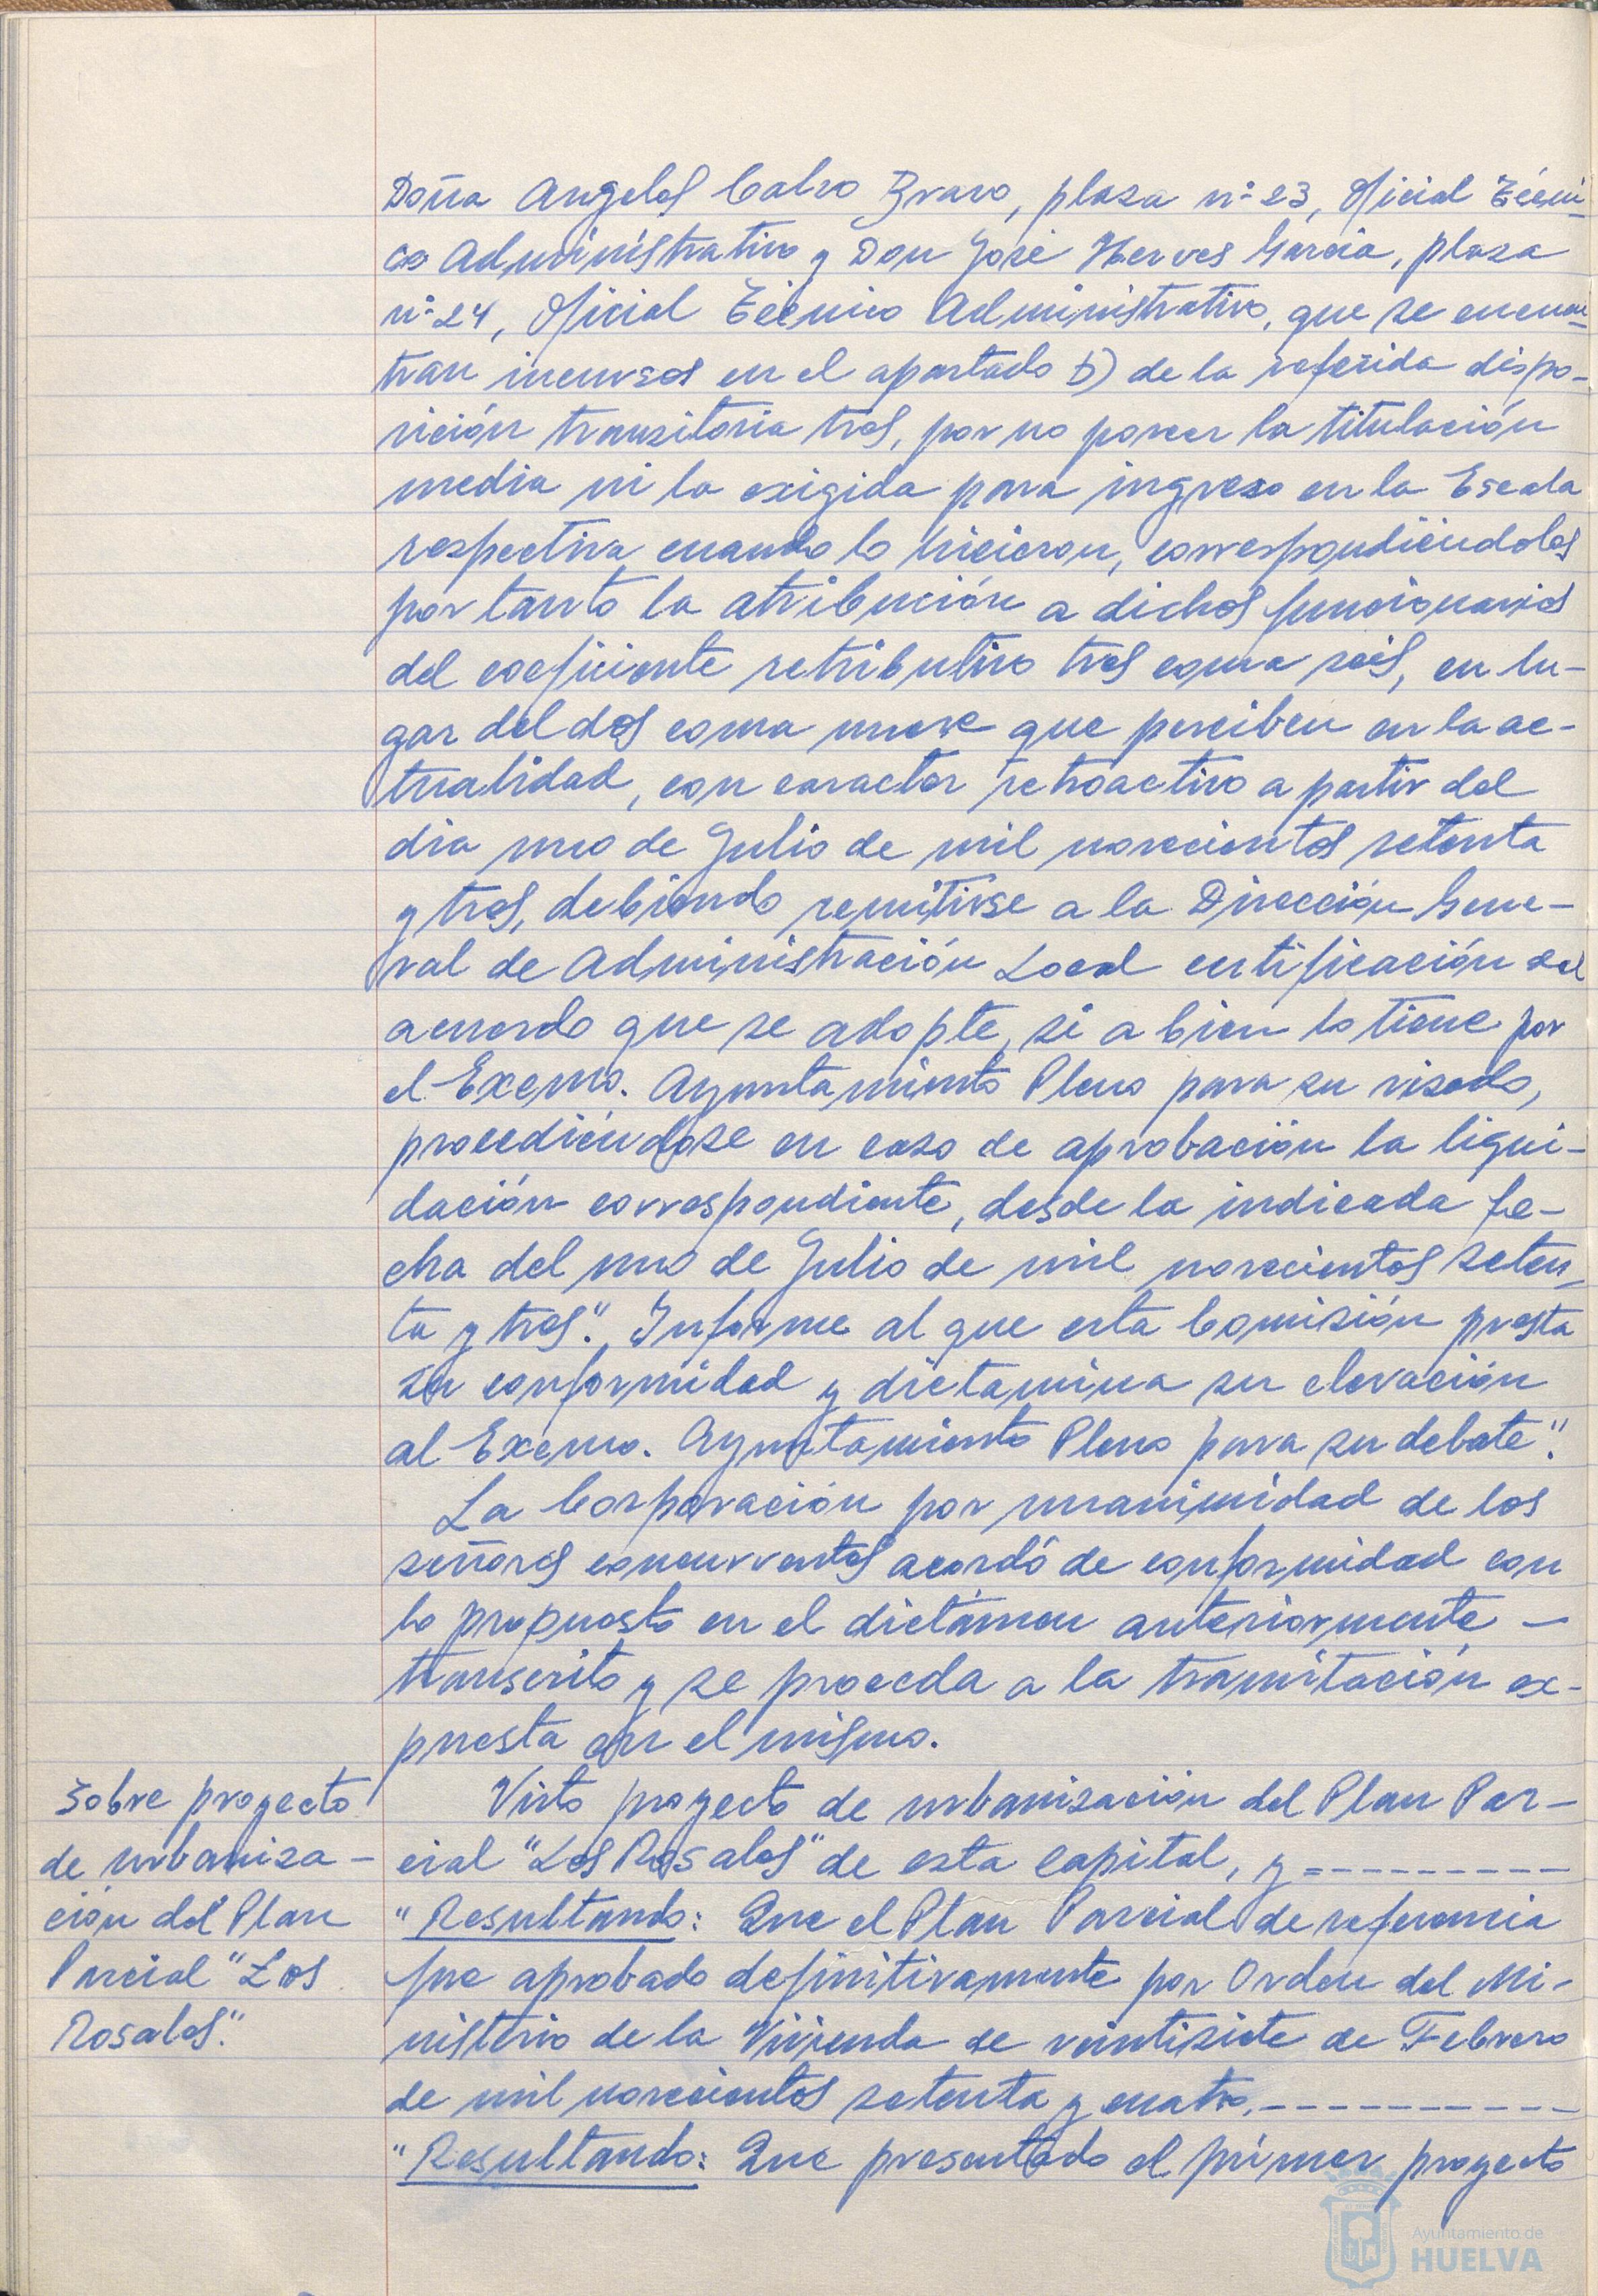 Doña Angeles Calvo Bravo, plaza nº 23, Oficial Técni-
co Administrativo y Don José Herves García, plaza
nº 24, Oficial Técnico Administrativo, que se encuen-
tran incursos en el apartado b) de la referida dispo-
sición transitoria tres, por no poseer la titulación
media ni la exigida para ingreso en la Escala
respectiva cuando lo hicieron, correspondiéndoles
por tanto la atribución a dichos funcionarios
del coeficiente retributivo tres coma seis, en lu-
gar del dos coma nueve que perciben en la ac-
tualidad, con caracter retroactivo a partir del
dia uno de Julio de mil novecientos setenta
y tres, debiendo remitirse a la Dirección Gene-
ral de Administración Local certificación del
acuerdo que se adopte, si a bien lo tiene por
el Excmo. Ayuntamiento Pleno para su visado,
procediéndose en caso de aprobación la liqui-
dación correspondiente, desde la indicada fe-
cha del uno de Julio de mil novecientos seten-
ta y tres". Informe al que esta Comisión presta
su conformidad y dictamina su elevación
al Excmo. Ayuntamiento Pleno para su debate".
La Corporación por unanimidad de los
señores concurrentes acordó de conformidad con
lo propuesto en el dictámen anteriormente -
transcrito y se proceda a la tramitación ex-
puesta en el mismo.
Sobre proyecto
de urbaniza-
ción del Plan
Parcial "Los
Rosales".
Visto proyecto de urbanización del Plan Par-
cial "Los Rosales" de esta capital, y ---------
"Resultando: Que el Plan Parcial de referencia
fue aprobado definitivamente por Orden del Mi-
nisterio de la Vivienda de veintisiete de Febrero
de mil novecientos setenta y cuatro.----------
"Resultando: Que presentado el primer proyecto
Ayuntamiento de
HUELVA